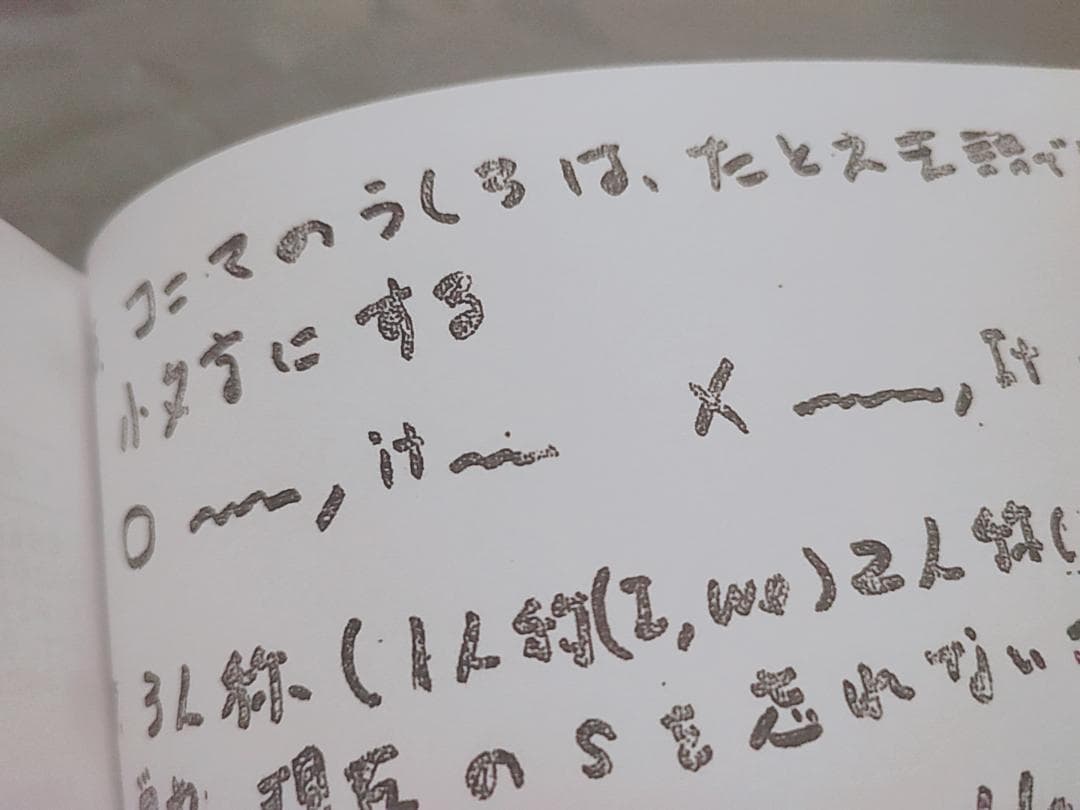 コンマのうしろは、たとえ主語で
小文字にする
○ 〜〜〜, it 〜〜 × 〜〜〜, It
3人称 (1人称(I, we) 2人称(
現在のSを忘れない